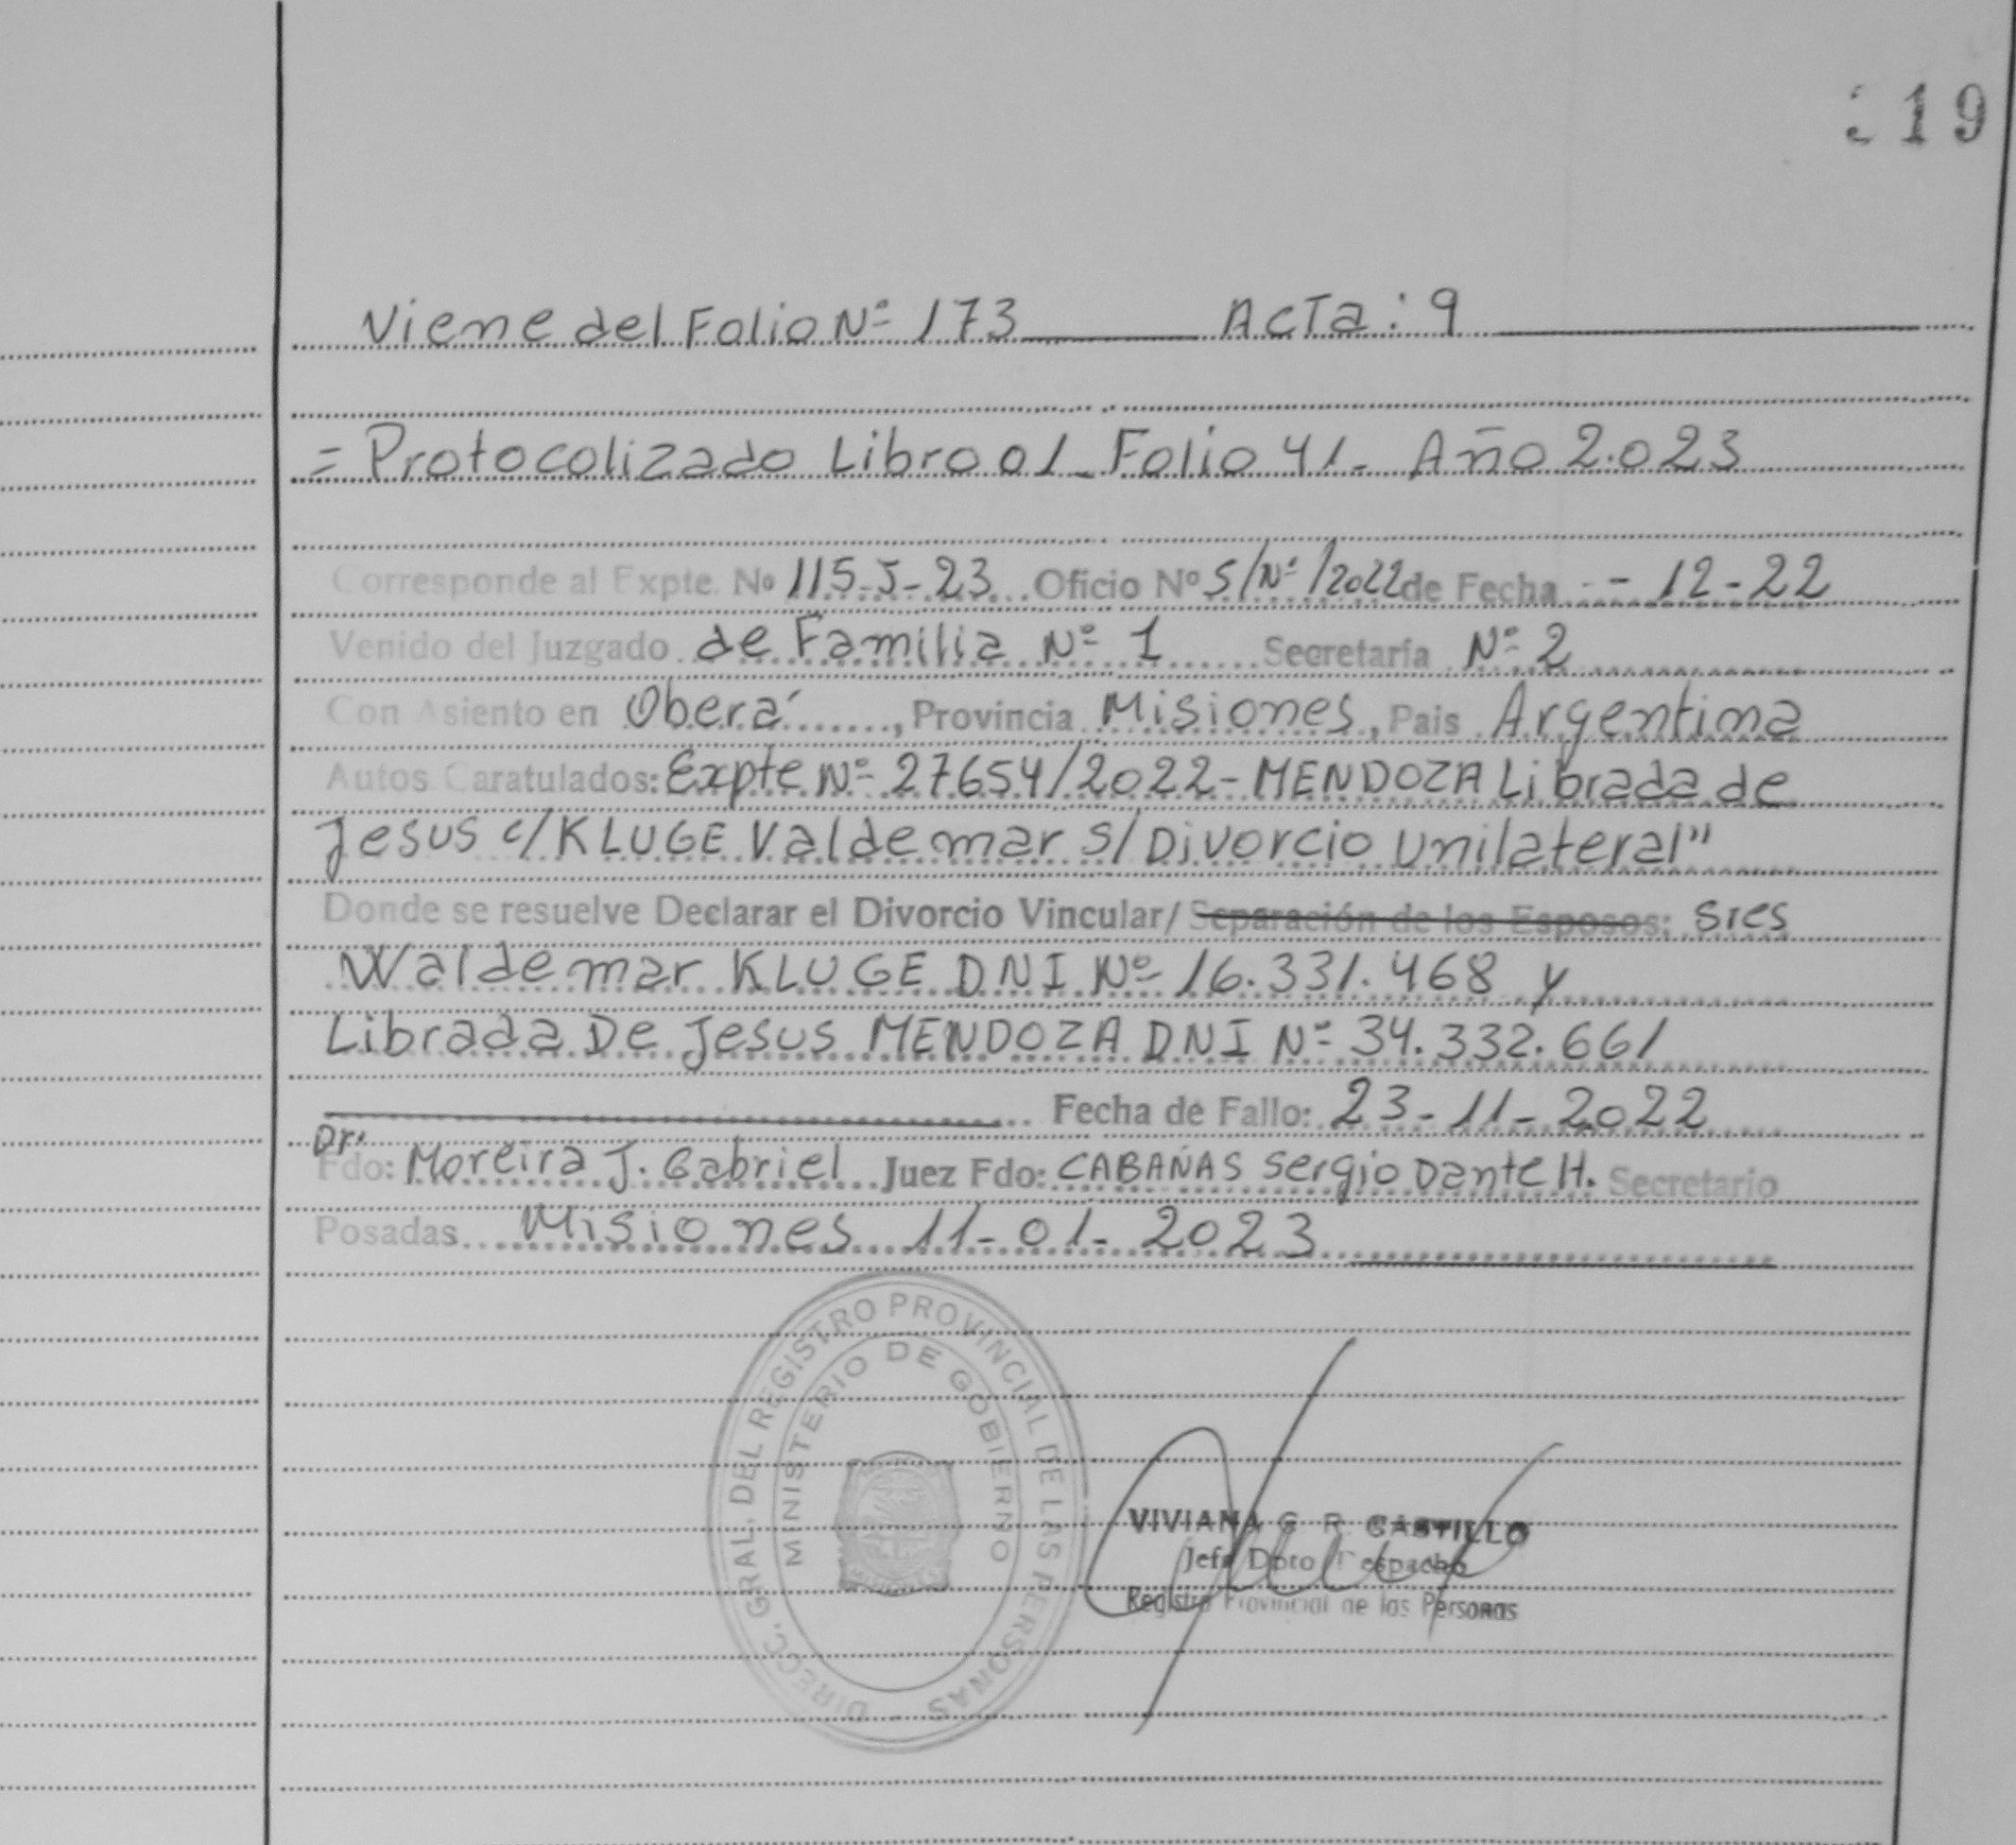 Viene del Folio Nº 173 Acta: 9
= Protocolizado Libro 01 - Folio 41 - Año 2.023
Corresponde al Expte. Nº 115-J-23 Oficio Nº S/Nº/2022 de Fecha - - 12-22
Venido del Juzgado de Familia Nº 1 Secretaría Nº 2
Con Asiento en Oberá, Provincia Misiones, Pais Argentina
Autos Caratulados: Expte Nº 27654/2022 - MENDOZA Librada de
Jesus c/ KLUGE Valdemar s/ Divorcio Unilateral"
Donde se resuelve Declarar el Divorcio Vincular/ Separación de los Esposos: sres
Waldemar KLUGE DNI Nº 16.331.468 y
Librada De Jesus MENDOZA DNI Nº 34.332.661
Fecha de Fallo: 23-11-2022
Dr.
Fdo: Moreira J. Gabriel Juez Fdo: CABAÑAS Sergio Dante H. Secretario
Posadas Misiones 11-01-2023
DIRECC. GRAL. DEL REGISTRO PROVINCIAL DE LAS PERSONAS
MINISTERIO DE GOBIERNO
VIVIANA G. R. CASTILLO
Jefe Dpto Despacho
Registro Provincial de las Personas